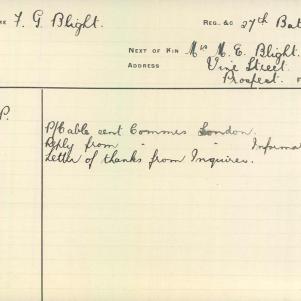 F. G. Blight.
REG. &C 27th Bat
NEXT OF KIN Mrs M. E. Blight.
ADDRESS Vine Street.
Prospect.
P.
P/Cable sent Commrs London.
Reply from " " Informa
Letter of thanks from Inquirer.